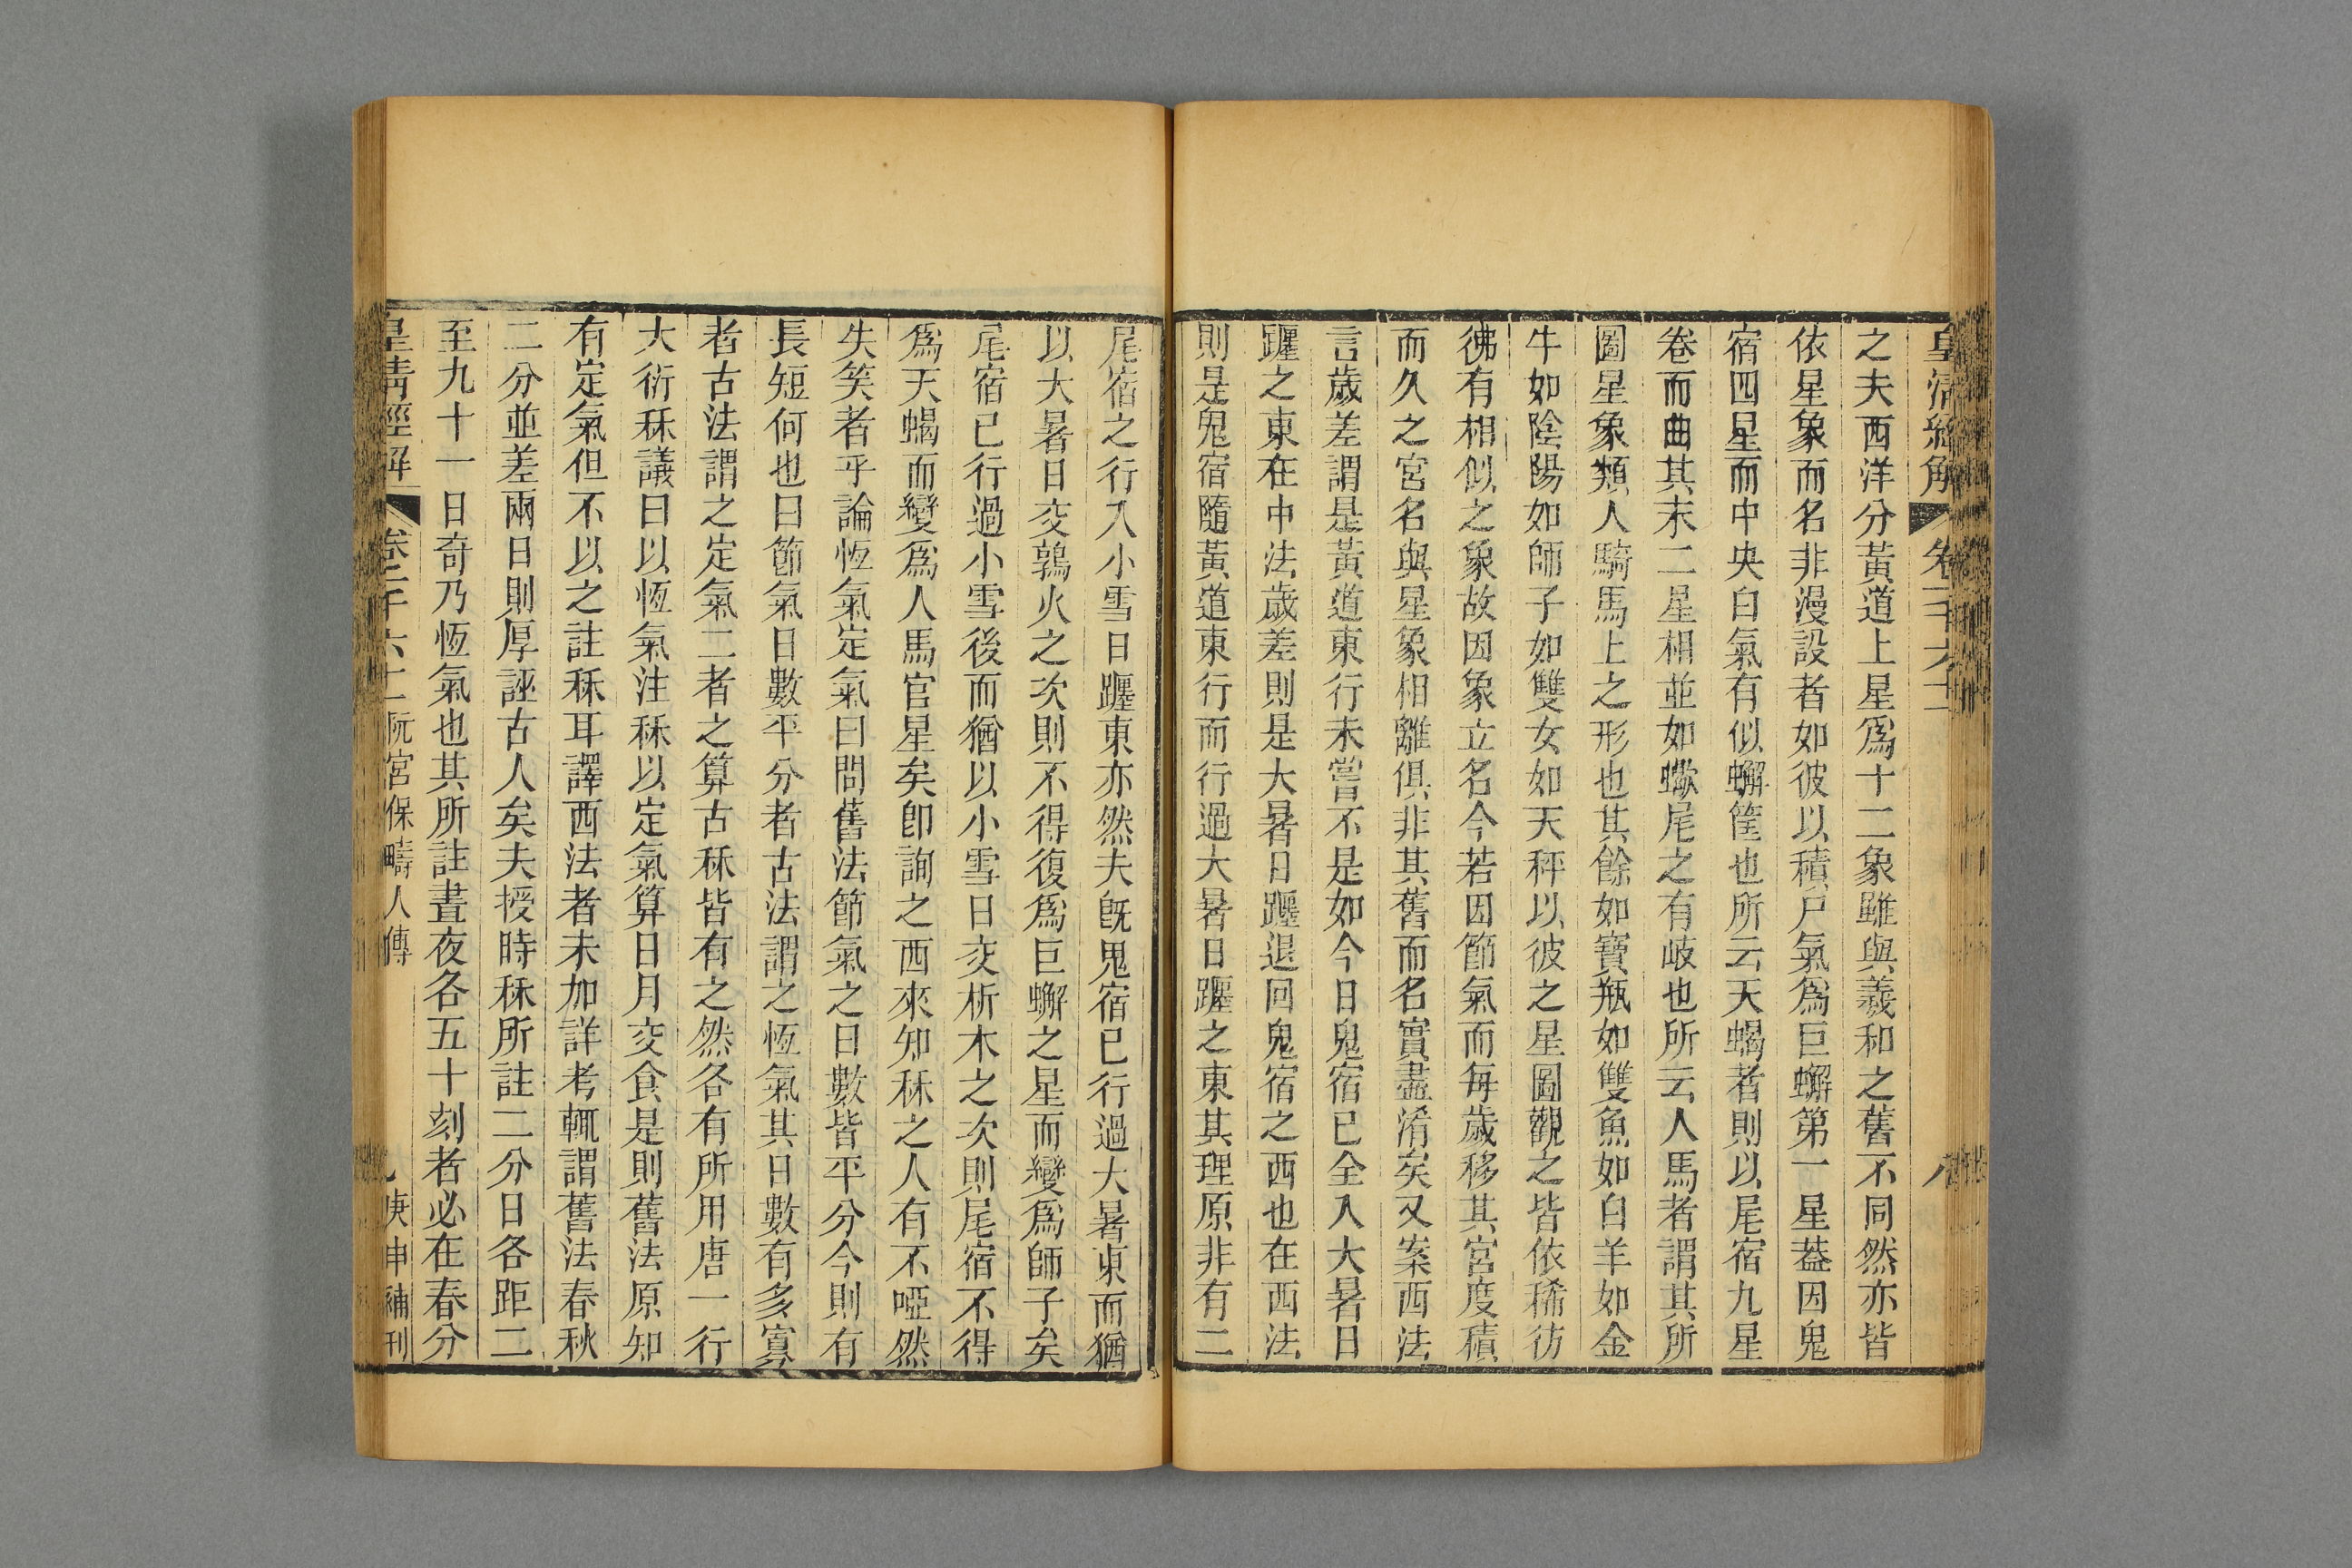 皇清經解
卷一千六十一
八
之夫西洋分黃道上星爲十二象雖與羲和之舊不同然亦皆
依星象而名非漫設者如彼以積尸氣爲巨蠏第一星葢因鬼
宿四星而中央白氣有似蠏筐也所云天蝎者則以尾宿九星
卷而曲其末二星相並如蠍尾之有岐也所云人馬者謂其所
圖星象類人騎馬上之形也其餘如寶瓶如雙魚如白羊如金
牛如陰陽如師子如雙女如天秤以彼之星圖觀之皆依稀彷
彿有相似之象故因象立名今若因節氣而每歲移其宮度積
而久之宮名與星象相離俱非其舊而名實盡淆矣又案西法
言歲差謂是黃道東行未嘗不是如今日鬼宿已全入大暑日
躔之東在中法歲差則是大暑日躔退回鬼宿之西也在西法
則是鬼宿隨黃道東行而行過大暑日躔之東其理原非有二
尾宿之行入小雪日躔東亦然夫旣鬼宿已行過大暑東而猶
以大暑日交鶉火之次則不得復爲巨蠏之星而變爲師子矣
尾宿已行過小雪後而猶以小雪日交析木之次則尾宿不得
爲天蝎而變爲人馬官星矣卽詢之西來知秝之人有不啞然
失笑者乎論恆氣定氣曰問舊法節氣之日數皆平分今則有
長短何也曰節氣日數平分者古法謂之恆氣其日數有多寡
者古法謂之定氣二者之算古秝皆有之然各有所用唐一行
大衍秝議曰以恆氣注秝以定氣算日月交食是則舊法原知
有定氣但不以之註秝耳譯西法者未加詳考輒謂舊法春秋
二分並差兩日則厚誣古人矣夫授時秝所註二分日各距二
至九十一日奇乃恆氣也其所註晝夜各五十刻者必在春分
皇清經解
卷一千六十一
阮宮保疇人傳
庚申補刊